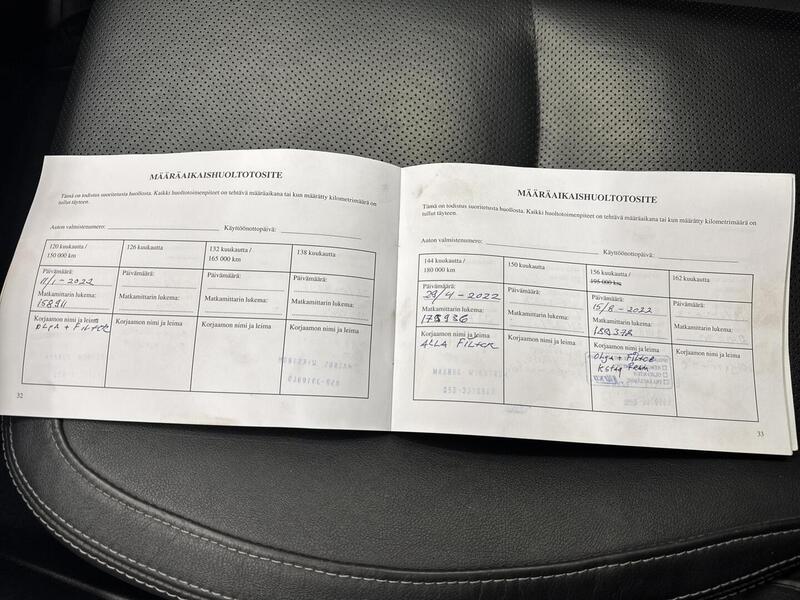 MÄÄRÄAIKAISHUOLTOTOSITE
Tämä on todistus suoritetusta huollosta. Kaikki huoltotoimenpiteet on tehtävä määräaikana tai kun määrätty kilometrimäärä on
tullut täyteen.
Auton valmistenumero: Käyttöönottopäivä:
120 kuukautta / 126 kuukautta 132 kuukautta / 138 kuukautta
150 000 km 165 000 km
Päivämäärä: Päivämäärä: Päivämäärä: Päivämäärä:
11/1-2022
Matkamittarin lukema: Matkamittarin lukema: Matkamittarin lukema: Matkamittarin lukema:
Korjaamon nimi ja leima Korjaamon nimi ja leima Korjaamon nimi ja leima Korjaamon nimi ja leima
OLJA + FILTER
32
MÄÄRÄAIKAISHUOLTOTOSITE
Tämä on todistus suoritetusta huollosta. Kaikki huoltotoimenpiteet on tehtävä määräaikana tai kun määrätty kilometrimäärä on
tullut täyteen.
Auton valmistenumero: Käyttöönottopäivä:
144 kuukautta / 150 kuukautta 156 kuukautta / 162 kuukautta
180 000 km 195 000 km
Päivämäärä: Päivämäärä: Päivämäärä: Päivämäärä:
29/4-2022 15/8-2022
Matkamittarin lukema: Matkamittarin lukema: Matkamittarin lukema: Matkamittarin lukema:
189378
Korjaamon nimi ja leima Korjaamon nimi ja leima Korjaamon nimi ja leima Korjaamon nimi ja leima
ALLA FILTER
Olja + Filter
33